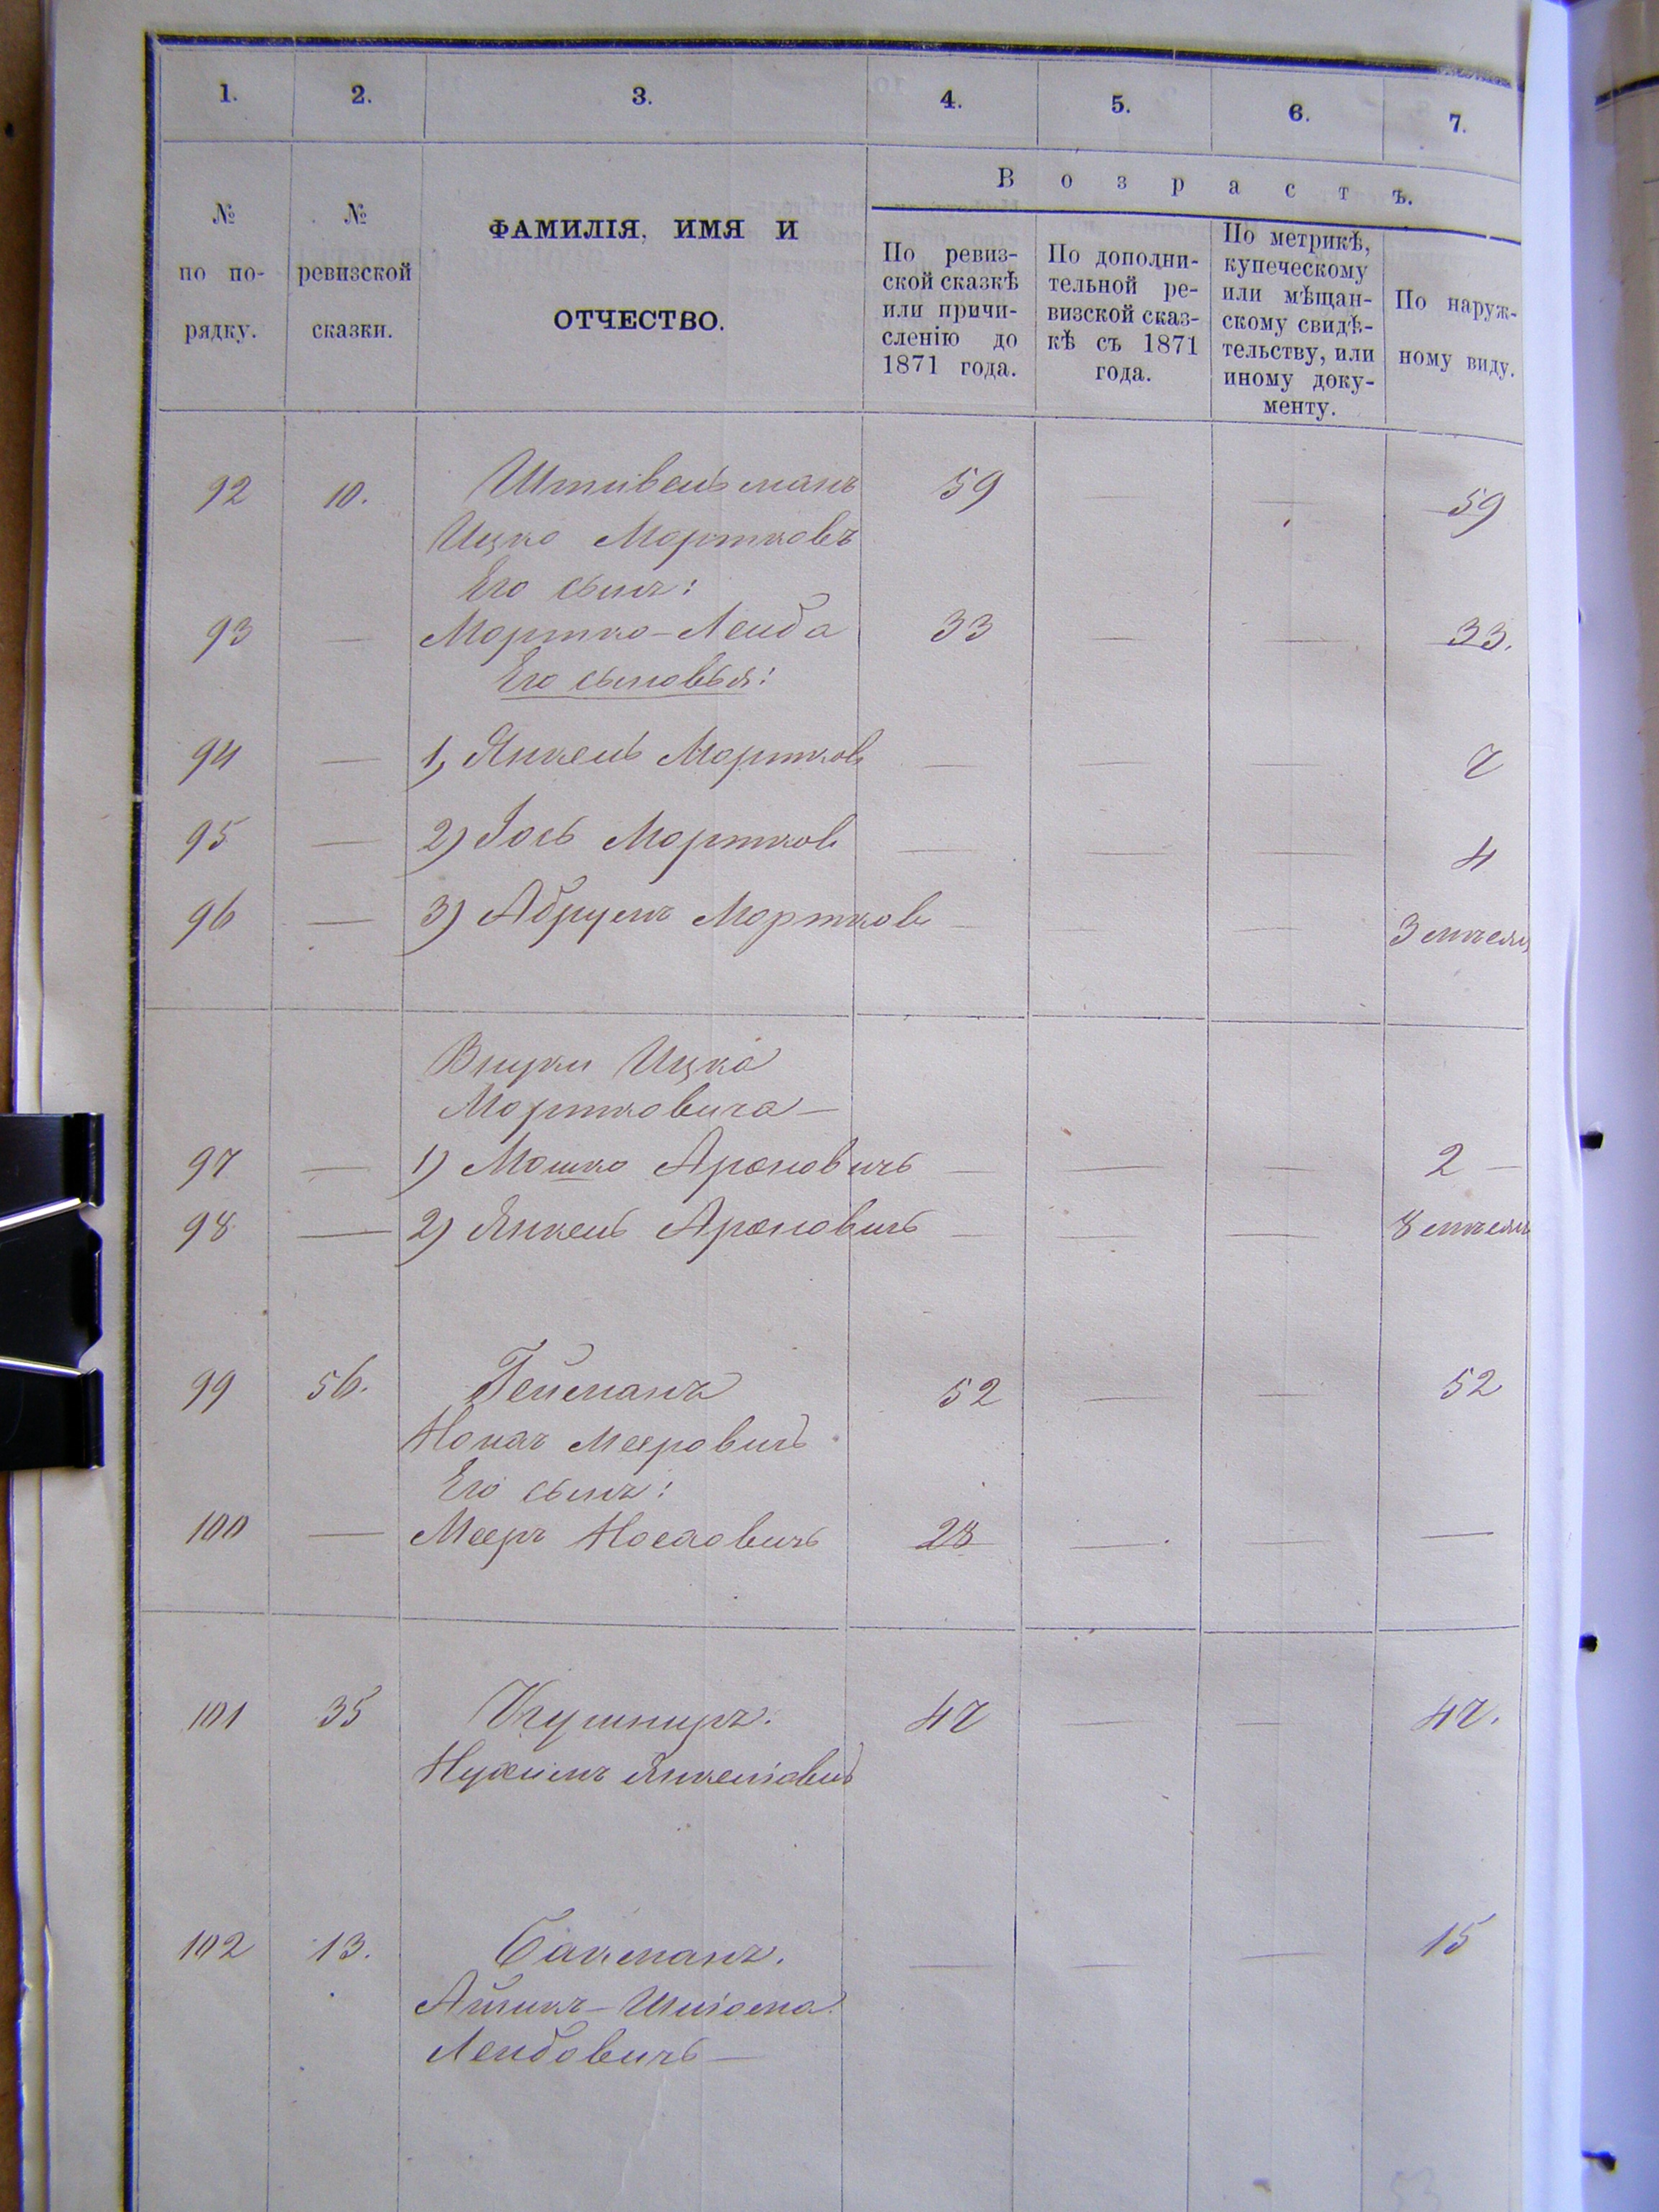 1. 2. 3. 4. 5. 6. 7.
№ по по-рядку.
№ ревизской сказки.
ФАМИЛІЯ, ИМЯ И
ОТЧЕСТВО.
Возрастъ.
По ревиз-
ской сказкѣ
или причи-
сленію до
1871 года.
По дополни-
тельной ре-
визской сказ-
кѣ съ 1871
года.
По метрикѣ,
купеческому
или мѣщан-
скому свидѣ-
тельству, или
иному доку-
менту.
По наруж-
ному виду.
92 10. Штивельманъ 59 — — 59
Ицко Мортковъ
Его сынъ:
93 — Мортко-Лейба 33 — — 33.
Его сыновья:
94 — 1, Янкель Мортков — — — 7
95 — 2) Іось Мортков — — — 4
96 — 3) Абрумъ Мортков — — — 3 мѣсяц
Внуки Ицка
Мортковича —
97 — 1) Мошко Ароновичъ — — — 2 —
98 — 2) Янкель Ароновичъ — — — 8 мѣсяц
99 56. Гейманъ 52 — — 52
Мееровичъ
Его сынъ:
100 — Мееръ 28 — — —
101 35 Кушниръ. 47 — — 47.
Нухимъ Янкелювичъ
102 13. — — — 15
Лейбовичъ —